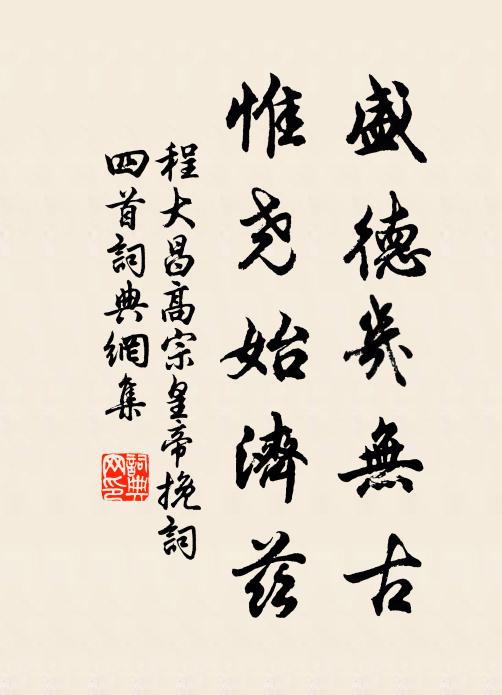 盛德几無古
惟尧始濟兹
程大昌高宗皇帝挽詞
四首詞典網集
詞典
网印